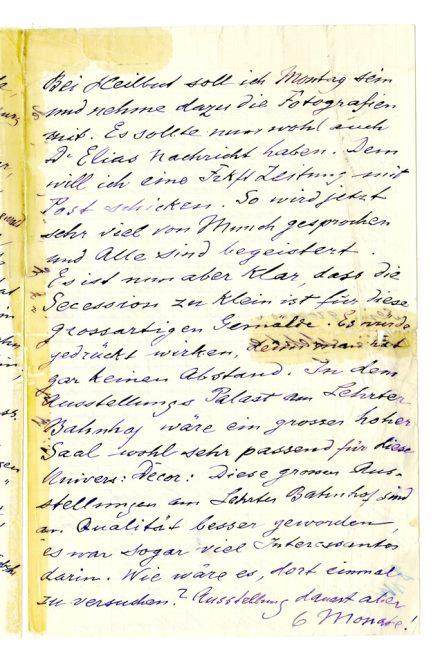 Bei Heilbut soll ich Montag sein
und nehme dazu die Fotografien
mit. Es sollte nun wohl auch
Dr Elias Nachricht haben. Dem
will ich eine Frkft Zeitung mit
Post schicken. So wird jetzt
sehr viel von Munch gesprochen
und Alle sind begeistert.
Es ist nun aber klar, dass die
Secession zu klein ist für diese
grossartigen Gemälde. Es würde
gedrückt wirken, denn man hat
gar keinen Abstand. In dem
Ausstellungs Palast am Lehrter
Bahnhof wäre ein grosser hoher
Saal wohl sehr passend für diese
Univers: Decor: Diese grossen Aus-
stellungen am Lehrter Bahnhof sind
an Qualität besser geworden,
es war sogar viel Interessantes
darin. Wie wäre es, dort einmal
zu versuchen? Ausstellung dauert aber
6 Monate!